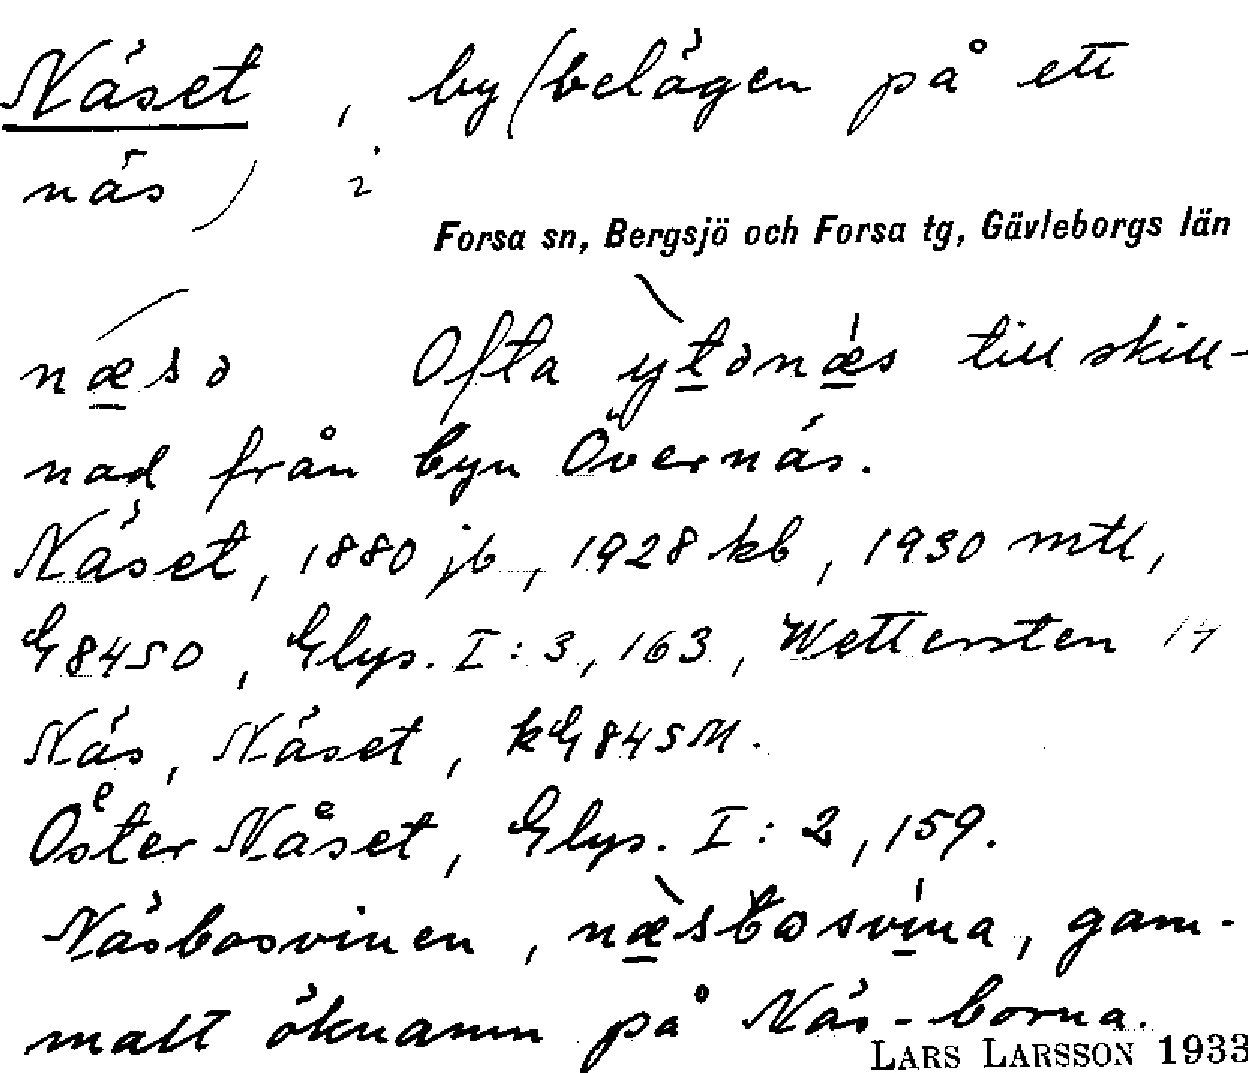 Näset, by (belägen på ett
näs) i
Forsa sn, Bergsjö och Forsa tg, Gävleborgs län
næsə Ofta ytənæs till skill-
nad från byn Övernäs.
Näset, 1880 jb, 1928 kb, 1930 mtl,
G8450, Glys. I:3, 163, Wettersten
Näs, Näset, kG845M.
Oͤster Naͤset, Glys. I:2, 159.
Näsbosvinen, næsbosvina, gam-
malt öknamn på Näs-borna.
LARS LARSSON 1933